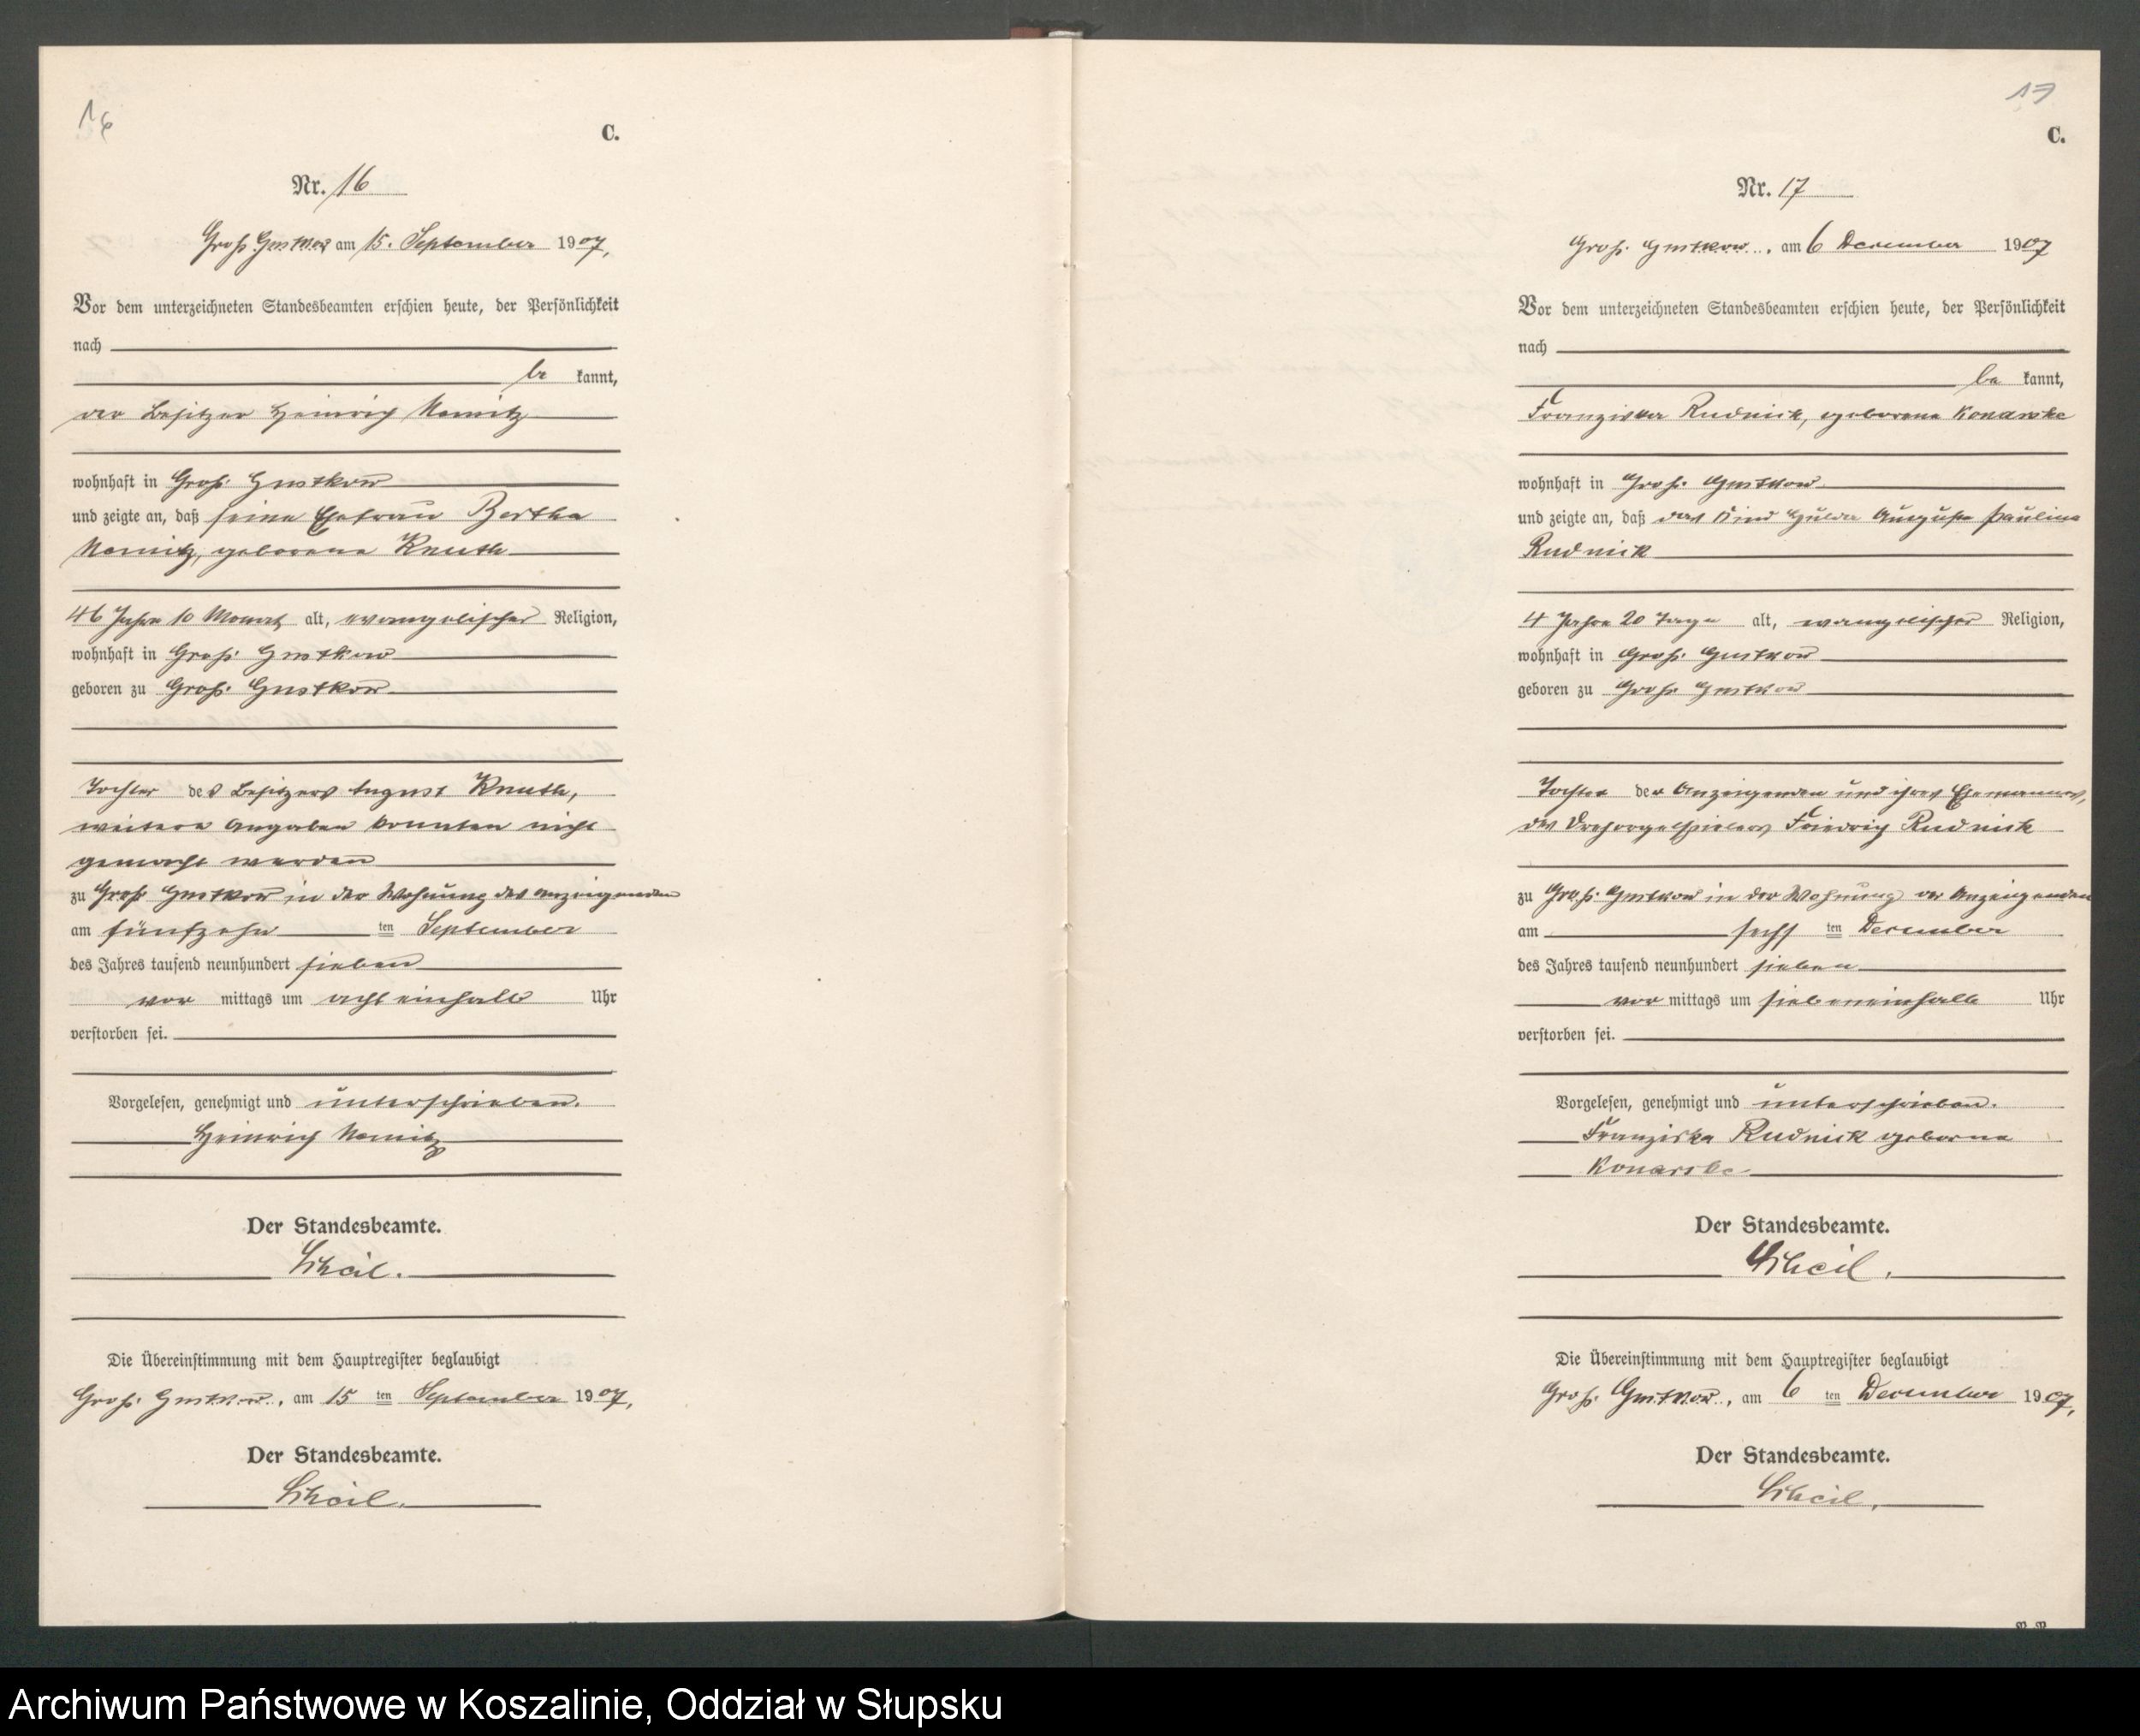 16
C.
Nr. 16
Groß Gustkow am 15. September 1907,
Vor dem unterzeichneten Standesbeamten erschien heute, der Persönlichkeit
nach
be kannt,
der Besitzer Heinrich Nemitz
wohnhaft in Groß Gustkow
und zeigte an, daß seine Ehefrau Bertha
Nemitz, geborene Knuth
46 Jahre 10 Monat alt, evangelischer Religion,
wohnhaft in Groß Gustkow
geboren zu Groß Gustkow
Tochter des Besitzers August Knuth,
weitere Angaben konnten nicht
gemacht werden
zu Groß Gustkow in der Wohnung des Anzeigenden
am fünfzehn ten September
des Jahres tausend neunhundert sieben
vor mittags um acht einhalb Uhr
verstorben sei.
Vorgelesen, genehmigt und unterschrieben.
Heinrich Nemitz
Der Standesbeamte.
Scheil.
Die Übereinstimmung mit dem Hauptregister beglaubigt
Groß Gustkow, am 15 ten September 1907,
Der Standesbeamte.
Scheil.
17
C.
Nr. 17
Groß Gustkow, am 6 December 1907
Vor dem unterzeichneten Standesbeamten erschien heute, der Persönlichkeit
nach
be kannt,
Franziska Rudnick, geborene Konarske
wohnhaft in Groß Gustkow
und zeigte an, daß das Kind Hulda Auguste Pauline
Rudnick
4 Jahre 20 Tage alt, evangelischer Religion,
wohnhaft in Groß Gustkow
geboren zu Groß Gustkow
Tochter der Anzeigenden und ihres Ehemannes,
des Drehorgelspielers Friedrich Rudnick
zu Groß Gustkow in der Wohnung der Anzeigenden
am sechs ten December
des Jahres tausend neunhundert sieben
vor mittags um siebeneinhalb Uhr
verstorben sei.
Vorgelesen, genehmigt und unterschrieben.
Franziska Rudnick geborne
Konarske
Der Standesbeamte.
Scheil.
Die Übereinstimmung mit dem Hauptregister beglaubigt
Groß Gustkow, am 6 ten December 1907,
Der Standesbeamte.
Scheil.
Archiwum Państwowe w Koszalinie, Oddział w Słupsku